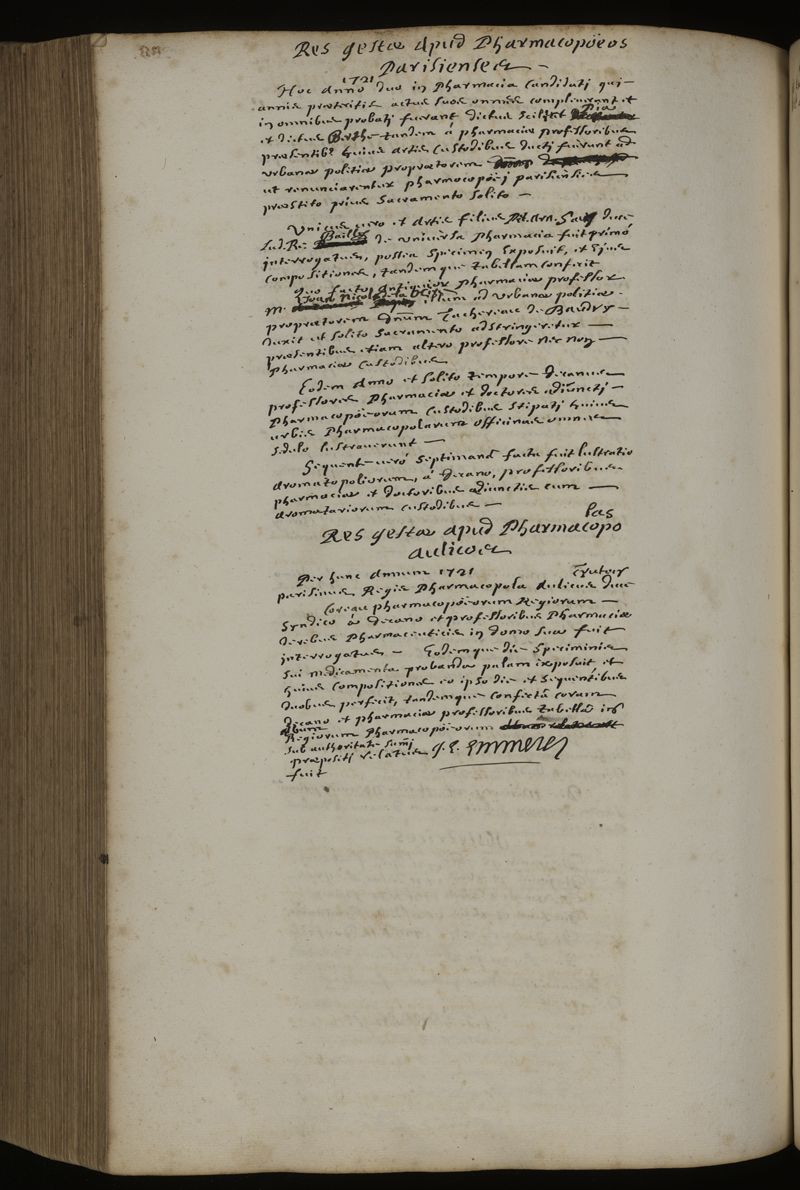 Res gestæ apud Pharmacopoeos
Parisienses —
1721
Hoc anno duo in Pharmacia Candidati qui
annis præteritis actus suos omnes compleverant et
in omnibus probati fuerant dictus scilicet Pia
et dictus Berthe tandem à pharmaciæ professoribus
præsentib⁹ huius artis Custodibus ducti fuerunt ad
urbanæ politiæ proprætorem
ut renunciarentur pharmacopoei parisienses
præstito prius Sacramento solito —
Unicus vero et artis filius
Bailly de universa Pharmacia fuit primò
interrogatus, postea specimen exposuit, et ejus
compositiones, tandemque tabellam confecit
quo facto antiquior Pharmaciæ professor
M. Joan Nicol illum ad urbanæ politiæ
proprætorem Dnum Tachereau de Baudry —
duxit ut solito sacramento adstringeretur —
præsentibus etiam altero professore nec non —
pharmaciæ Custodibus
Eodem anno et solito tempore decanus
professores Pharmaciæ et doctores adiuncti —
Pharmacopoeorum Custodibus stipati huius
urbis Pharmacopolarum officinas omnes
sedulo lustraverunt —
Sequente verò septimana facta fuit lustratio
aromatopoliorum, à decano, professoribus
pharmaciæ et doctoribus adiunctis cum —
aromatariorum custodibus —
Res gestæ apud Pharmacopo
las
aulicos
Per hunc annum 1721
parisinus Regis Pharmacopola aulicus
Coram pharmacopoeorum Regiorum —
Syndico à decano et professoribus Pharmaciæ
de rebus Pharmaceuticis in domo sua fuit
interrogatus — Eodemque die speciminis
sui medicamenta probanda palam exposuit et
huius compositiones eo ipso die et sequentibus
duobus perfecit, tandemque confectâ coram
decano et pharmaciæ professoribus tabellâ in
album
Regiorum Pharmacopoeorum
sub authoritate summi
præpositi relatus
fuit